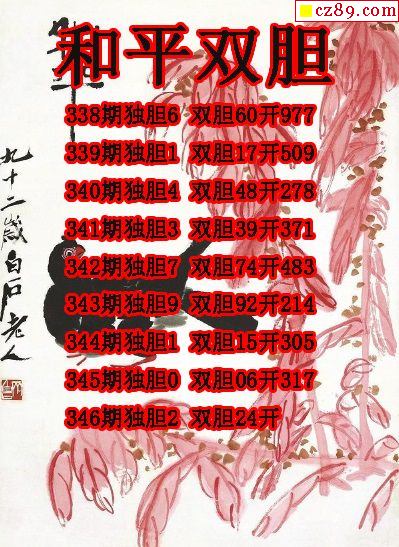 cz89.com
和平双胆
338期独胆6 双胆60开977
339期独胆1 双胆17开509
340期独胆4 双胆48开278
341期独胆3 双胆39开371
342期独胆7 双胆74开483
343期独胆9 双胆92开214
344期独胆1 双胆15开305
345期独胆0 双胆06开317
346期独胆2 双胆24开
九十二歲白石老人